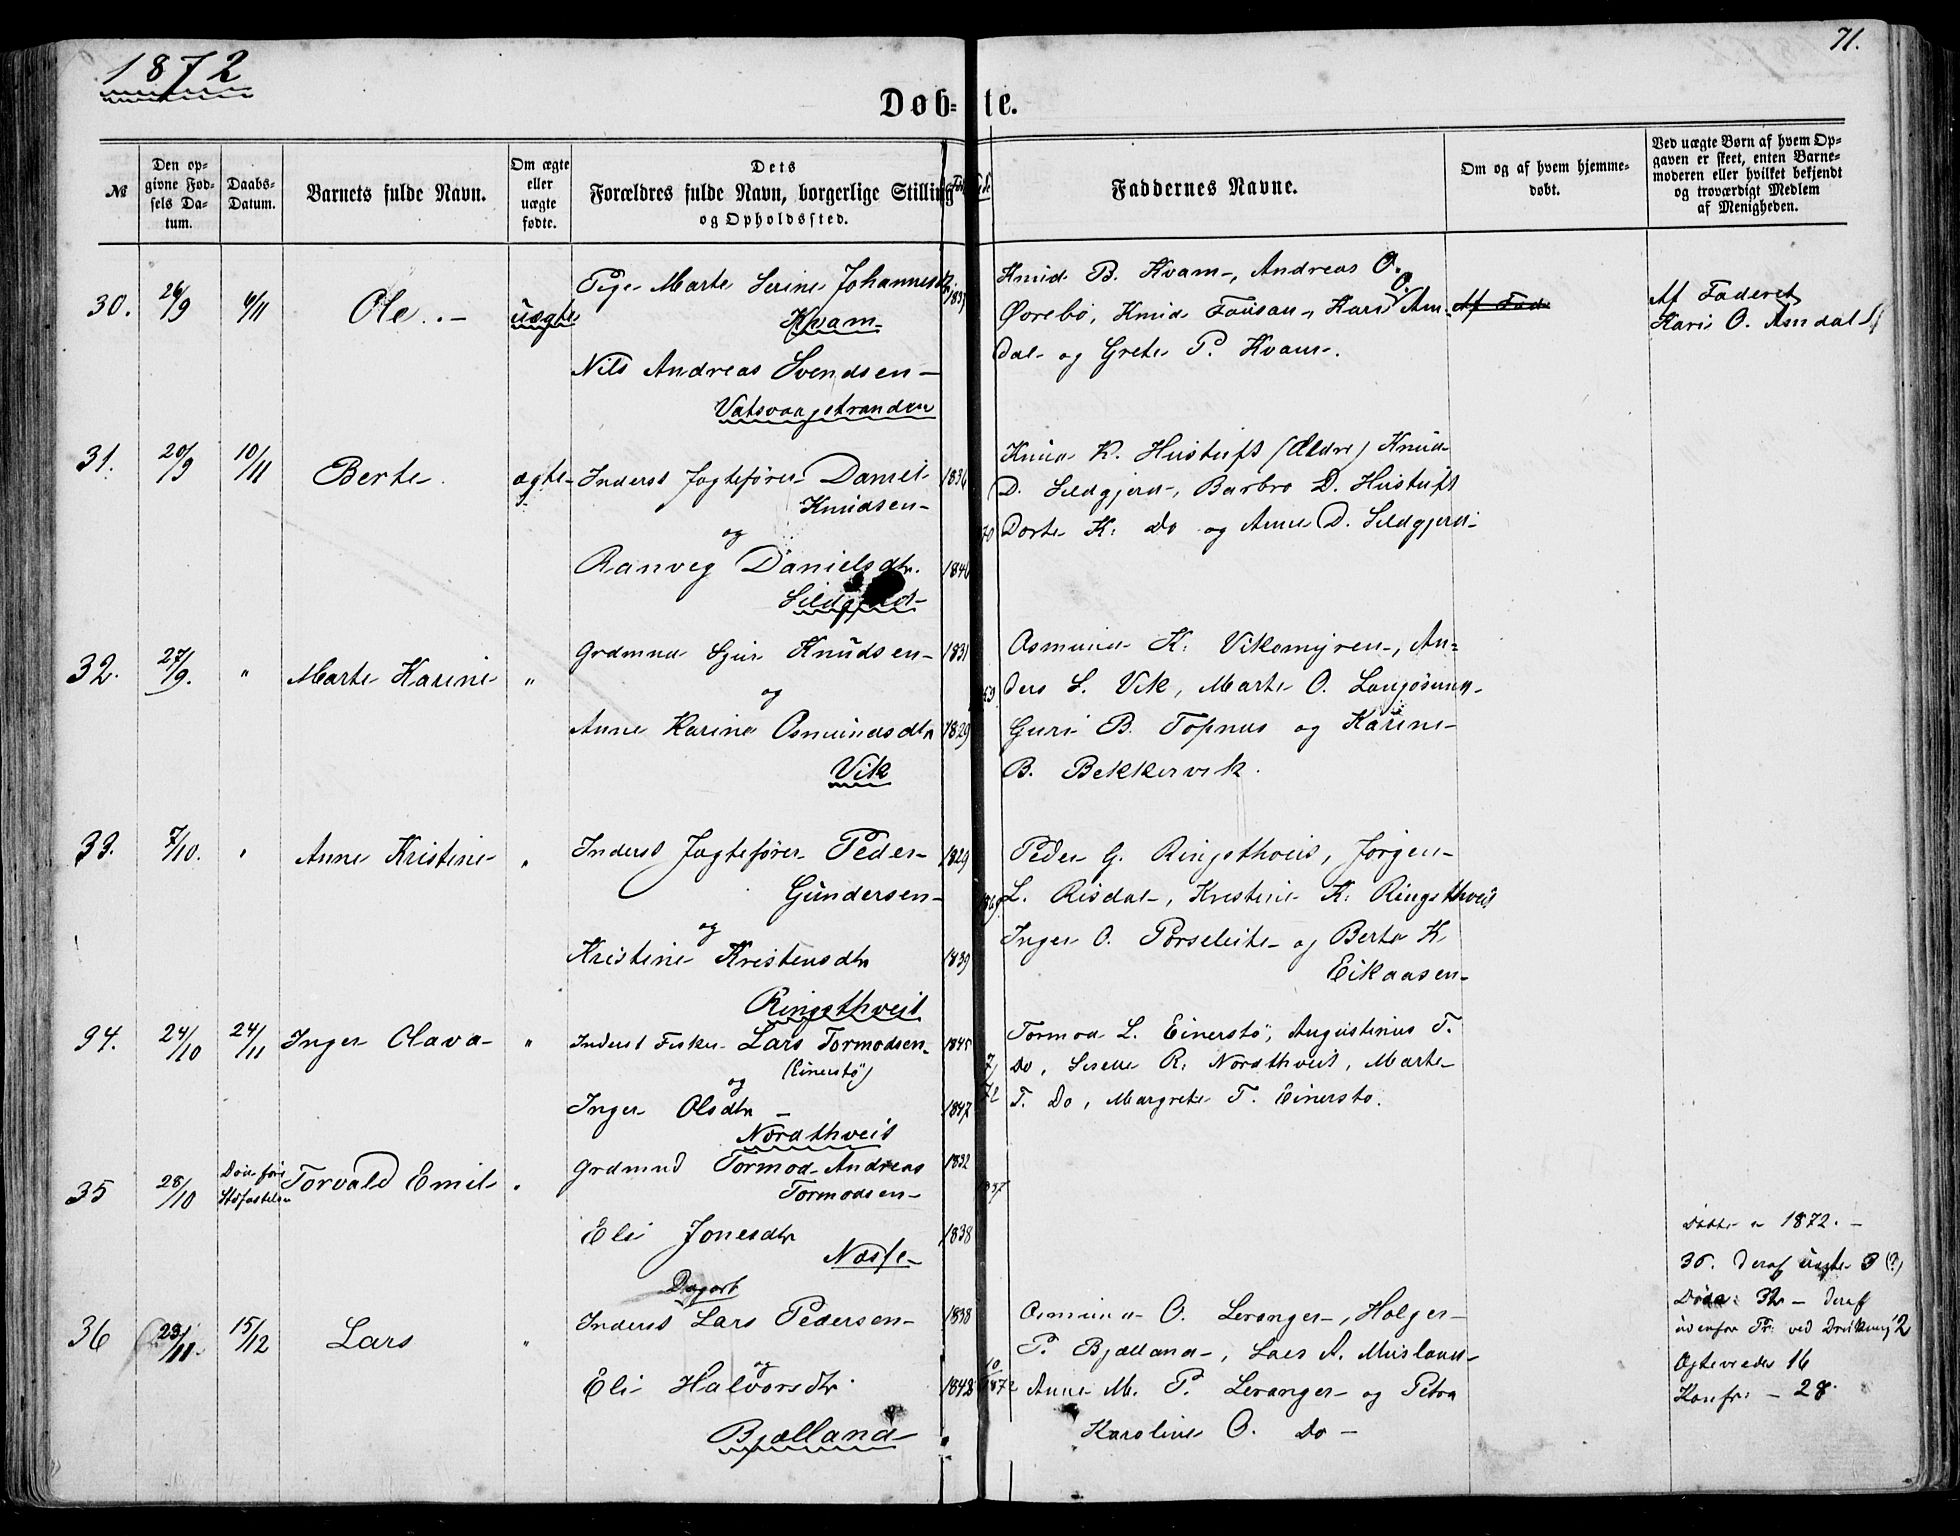 1872
71.
Døb-te.
№
Den opgivne Fødsels Datum.
Daabs-Datum.
Barnets fulde Navn.
Om ægte eller uægte fødte.
Dets
Forældres fulde Navn, borgerlige Stilling
og Opholdssted.
Faddernes Navne.
Om og af hvem hjemmedøbt.
Ved uægte Børn af hvem Opgaven er skeet, enten Barnemoderen eller hvilket bekjendt og troværdigt Medlem af Menigheden.
30. 26/9 4/11 Ole. uægte
Pige Marte Serine Johannesd
Kvam
Nils Andreas Svendsen
Vatsvaagstranden
Knud B. Kvam, Andreas O.
Øvrebø, Knud Fousan, Kari O. Am-
dal og Grete P. Kvam.
Af Fad
Af Faderet
Kari O. Amdal
31. 20/9 10/11 Berte. ægte
Inderst Jagtefører Daniel 1836
Knudsen
og
Ranveg Danielsdtr. 1840
Sildgjerd
Knud K. Hustuft (Ældre) Knud
D. Sildgjerd, Barbro D. Hustuft
Dorte K. Do og Anne D. Sildgjerd
32. 27/9. " Marte Karine "
Grdmnd Sjur Knudsen 1831
og
Anne Karine Osmundsdtr 1829
Vik
Osmund K. Vikemyren, An-
ders S. Vik, Marte O.
Guri B. Topnes og Karine
B. Bekkervik.
33. 7/10. " Anne Kristine "
Inderst Jagtefører Peder 1829
Gundersen
og
Kristine Kristensdtr 1839
Ringsthveit
Peder G. Ringsthveit, Jørgen
L. Risdal, Kristine K. Ringsthveit
Inger O. Porseleite og Berte K.
Eikaasen
34. 24/10 24/11 Inger Olava "
Inderst Fisker Lars Tormodsen 1845
(Einerstø)
og
Inger Olsdtr 1847
Nordthveit
Tormod L. Einerstø, Augustinus T.
Do, Serene R. Nordthveit, Marte
T. Do, Margrete T. Einerstø.
35 28/10 Død før
Torvald Emil "
Grdmnd Tormod Andreas 1832
Tormodsen
Eli Jonesdtr 1838
Nesse
36 23/11 15/12 Lars "
Dagarb
Inderst Lars Pedersen 1838
og
Eli Halvorsdtr. 1842
Bjælland
Osmund O. Leranger, Holger
P. Bjælland, Lars A. Musland
10/1872 Anne M. P. Leranger og Petra
Karoline O. Do
Døbte i 1872.
36. deraf uægte 3 (?)
Døde: 32 deraf
udenfor Pr: ved Drukning 2
Ægteviede 16
Konfr: 28.